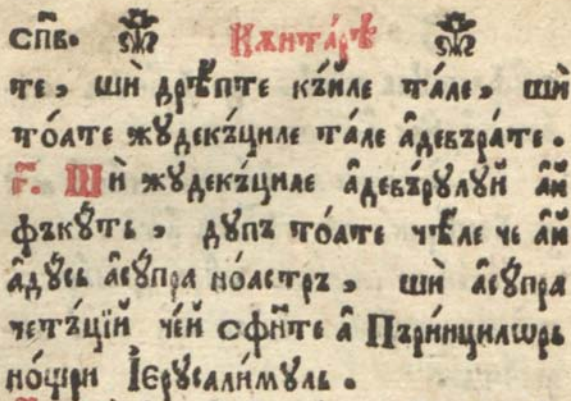 сп҃в. Кѫнта́рѣ
те, шѝ дрѣ́пте къ́йле та́ле, шѝ
то́ате жꙋдекъ́циле тале а҆девъра́те.
г҃. Шѝ жꙋдекъ́циле а҆девъ́рꙋлꙋй а҆й
фъкꙋ́ть, дꙋпъ то́ате чѣ́ле че а҆й
а҆дꙋ́сь а҆сꙋ́пра но́астръ, шѝ а҆сꙋ́пра
четъ́цїй че́й сфи́нте а҆ Пъри́нцилѡрь
но́щри І҆ерꙋсали́мꙋль.